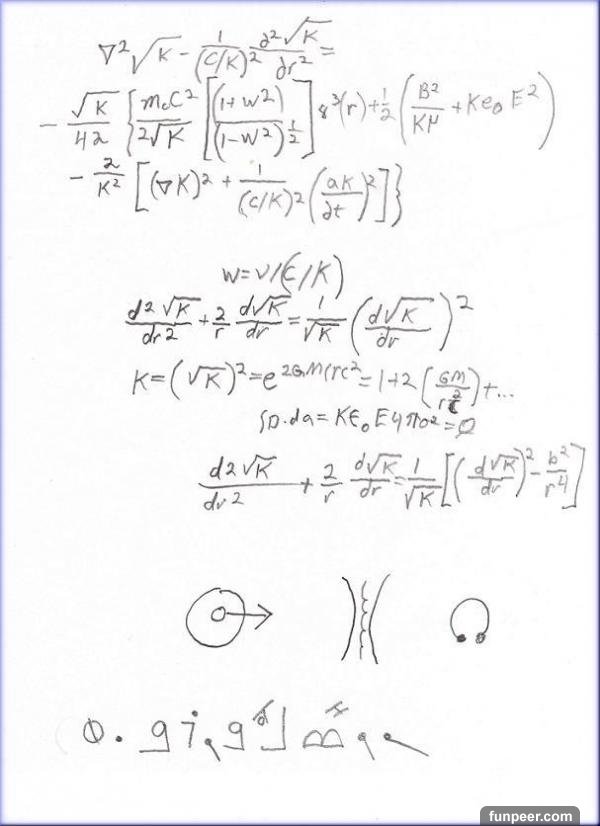 ∇²√K - 1/(C/K)² ∂²√K/∂r² =
- √K/42 { m₀C²/2√K [(1+w²)/(1-W²)^½] 8³(r) + 1/2 (B²/KM + Ke₀E²)
- 2/K² [(∇K)² + 1/(C/K)² (aK/∂t)²] }
w=v/(C/K)
d2√K/dr2 + 2/r d√K/dr = 1/√K (d√K/dr)²
K=(√K)²=e^2GM(rc²=1+2(GM/rc²)+...
∫D.da=Kϵ₀E4πo²=Q
d2√K/dr2 + 2/r d√K/dr = 1/√K [(d√K/dr)² - b²/r4]
funpeer.com